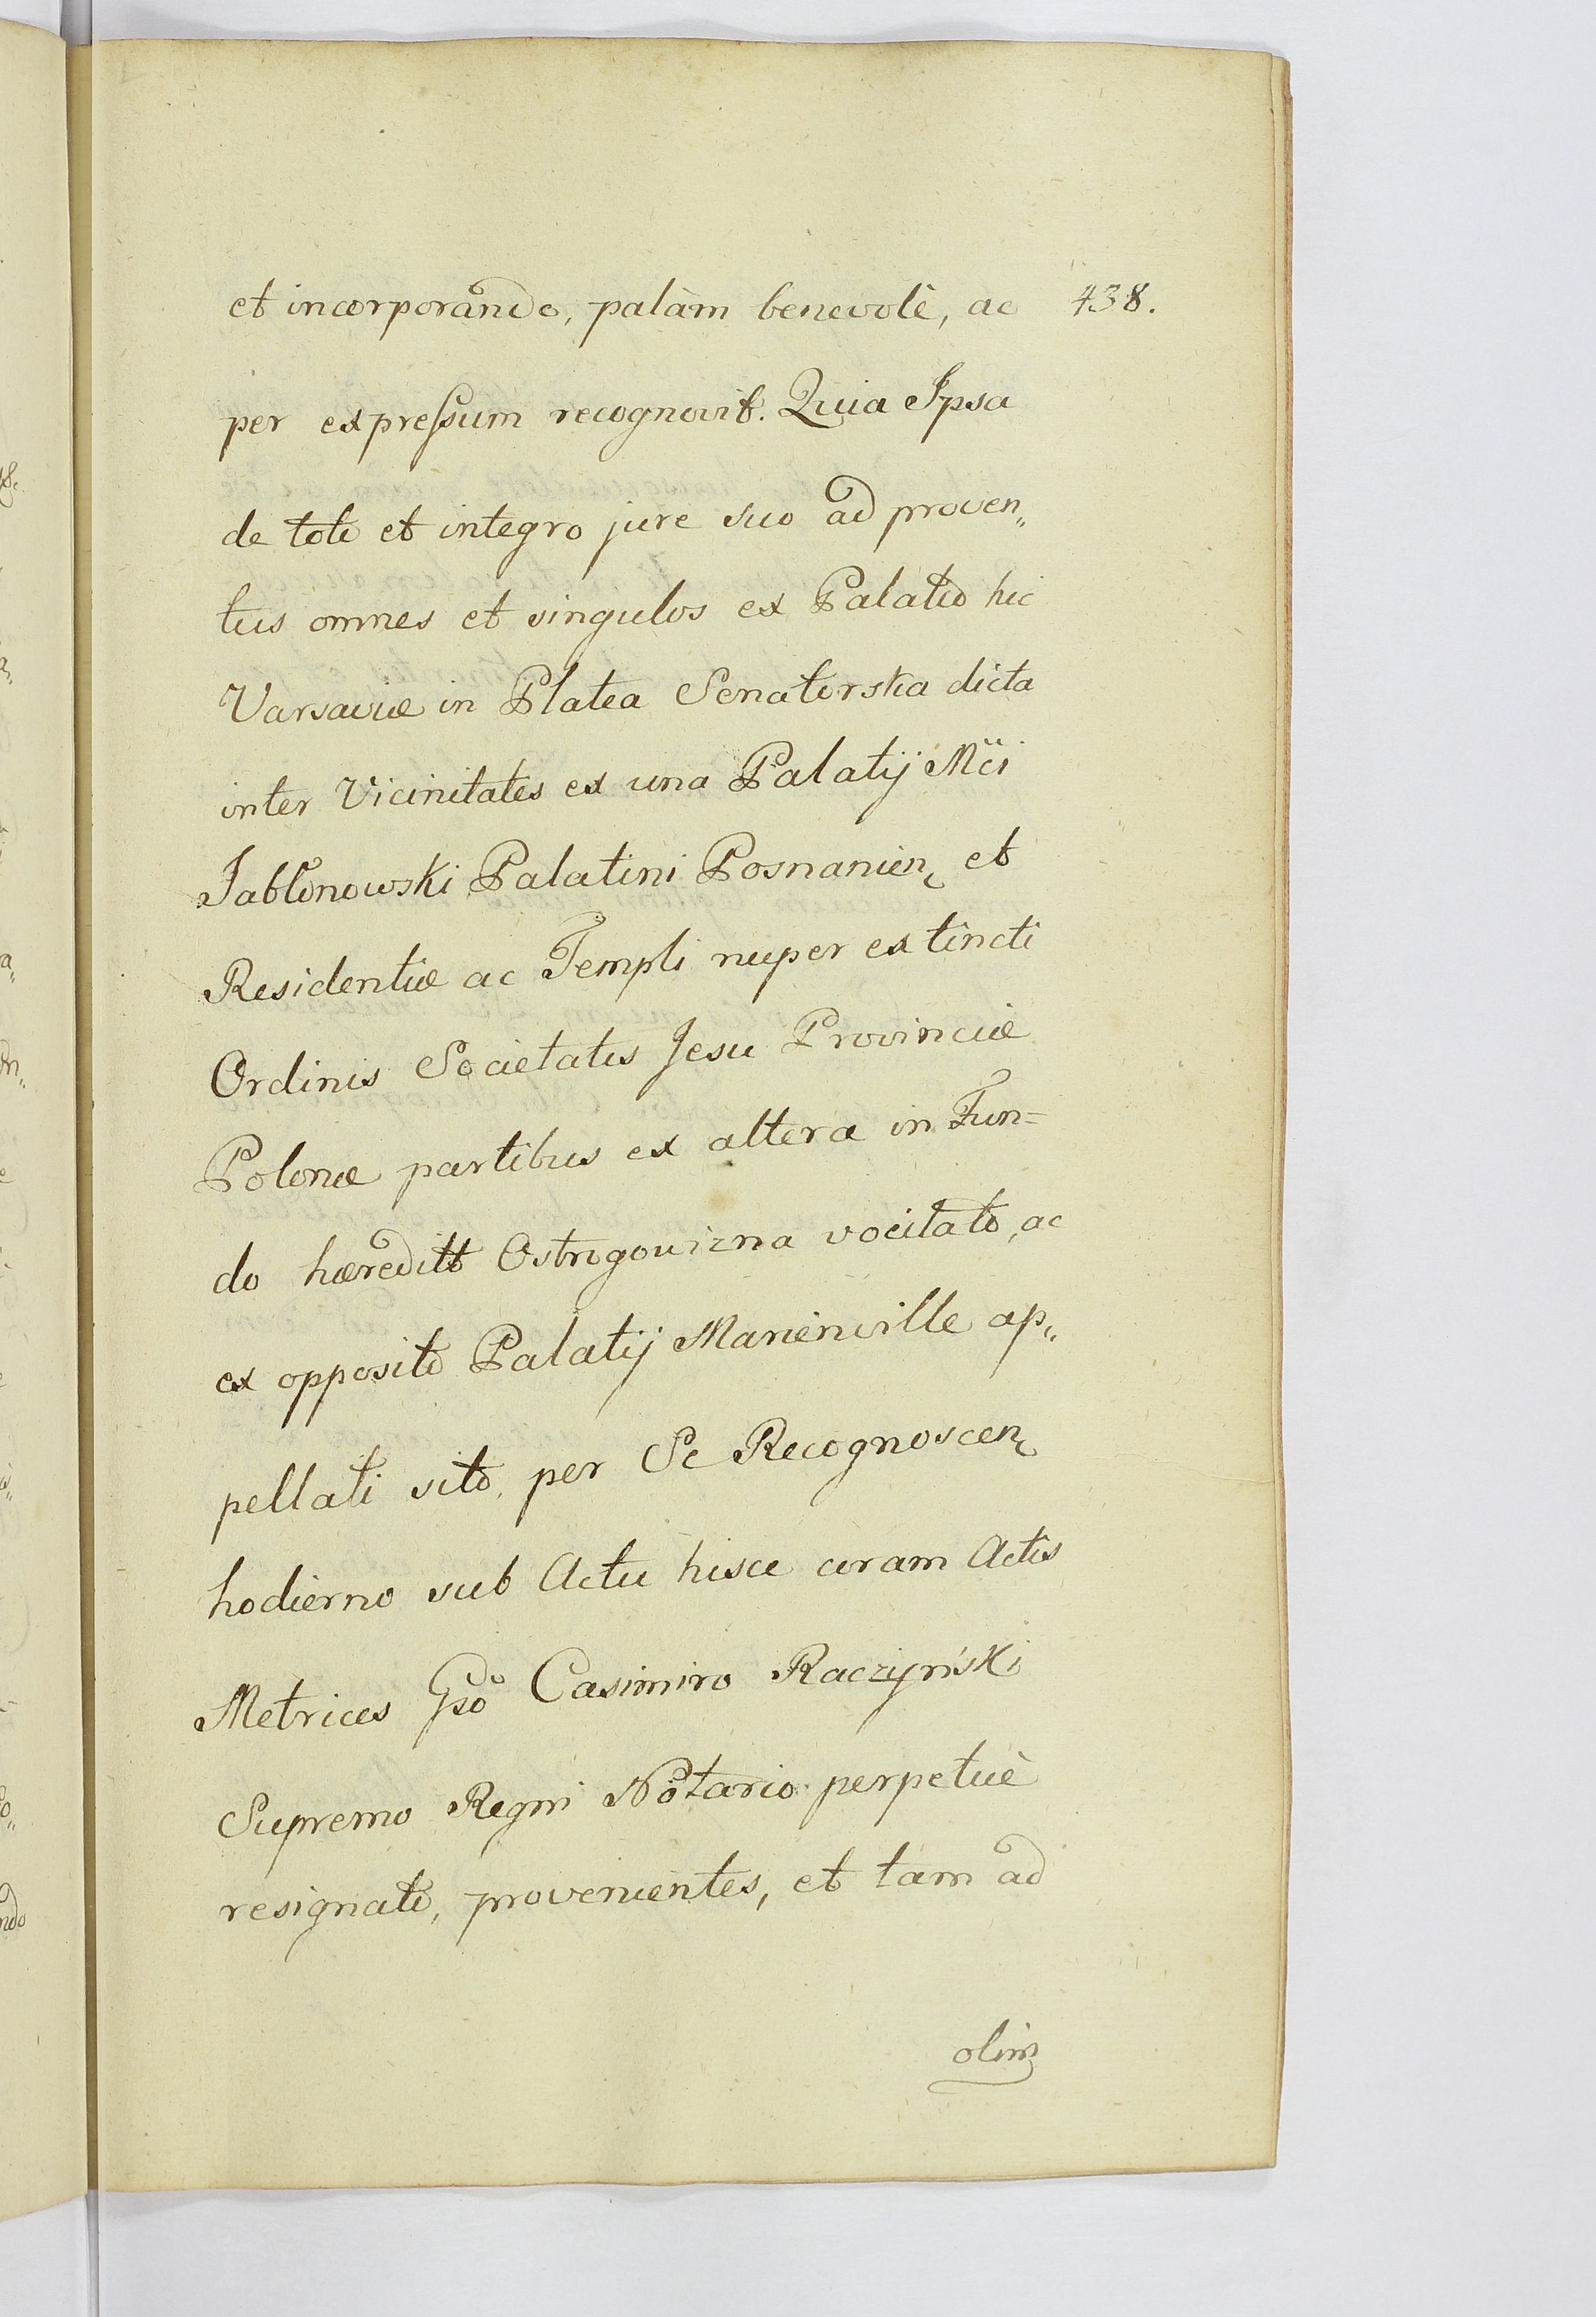 et incorporando, palàm benevolè, ac 438.
per expreſsum recognovit. Quia Ipsa
de toto et integro jure suo ad proven„
tus omnes et singulos ex Palatio hic
Varsaviæ in Platea Senatorska dicta
inter Vicinitates ex una Palatij Mci
Jabłonowski Palatini Posnanien, et
Residentiæ ac Templi nuper extincti
Ordinis Societatis Jesu Provinciæ
Polonæ partibus ex altera in Fun=
do hæreditt Ostrogowizna vocitato, ac
ex opposito Palatij Marienville ap„
pellati sito, per Se Recognoscen,
hodierno sub Actu hisce coram Actis
Metrices Gso Casimiro Raczyński
Supremo Regni Notario perpetuè
resignato, provenientes, et tam ad
olim